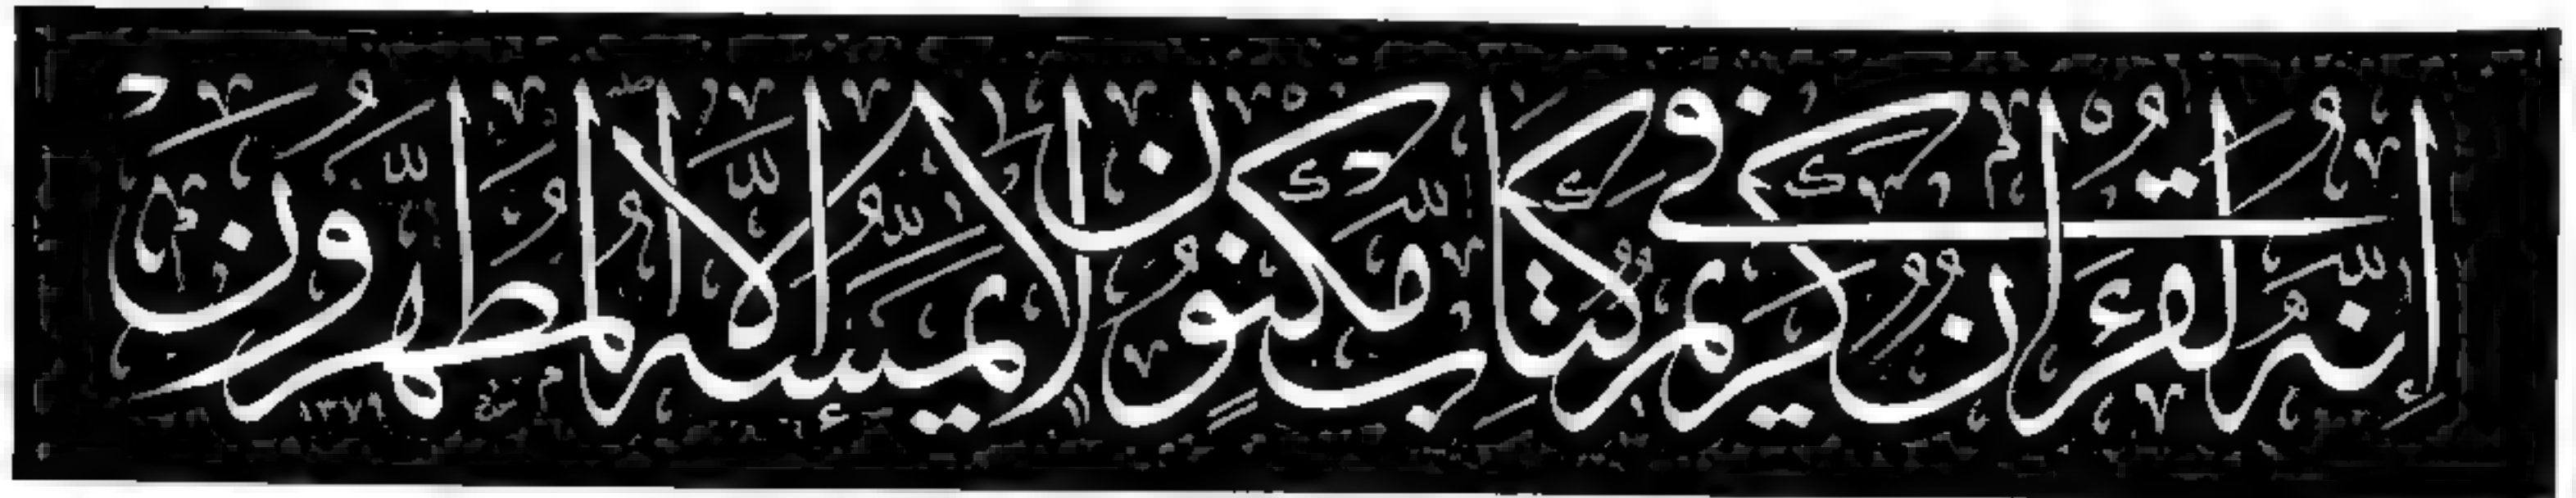 إِنَّهُ لَقُرْءَانٌ كَرِيمٌ فِي كِتَابٍ مَّكْنُونٍ لَّا يَمَسُّهُ إِلَّا الْمُطَهَّرُونَ ١٣٧٩